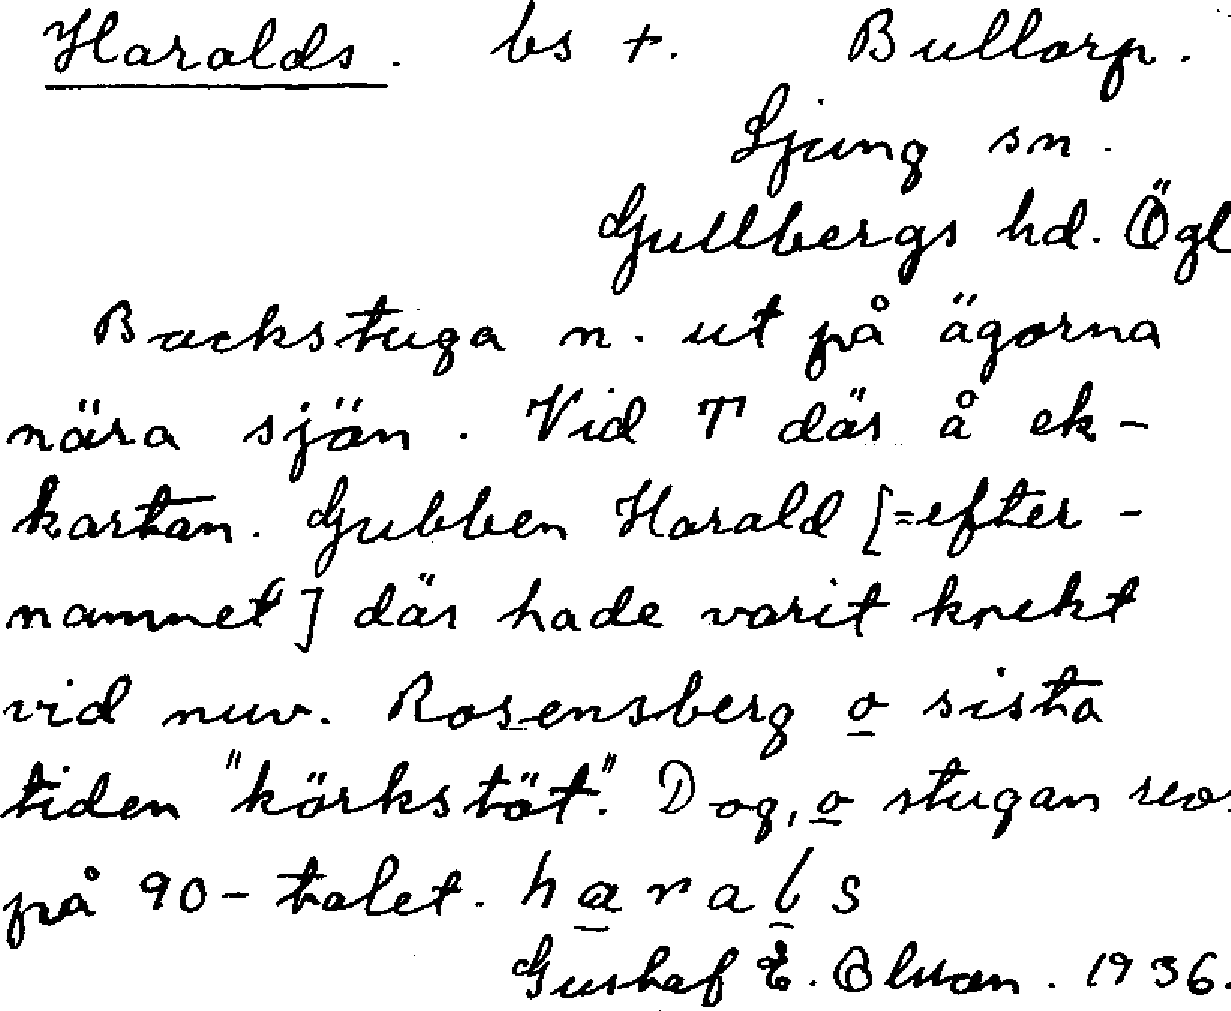 Haralds. bs +. Bullorp.
Ljung sn.
Gullbergs hd. Ögl
Backstuga n. ut på ägorna
nära sjön. Vid T där å ek-
kartan. Gubben Harald [=efter-
namnet] där hade varit knekt
vid nuv. Rosensberg o sista
tiden "körkstöt". Dog, o stugan revs
på 90-talet. harals
Gustaf E. Olsson. 1936.